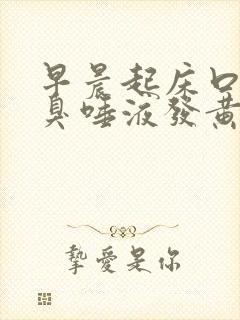 早晨起床口
臭唾液發黃
摯愛是你